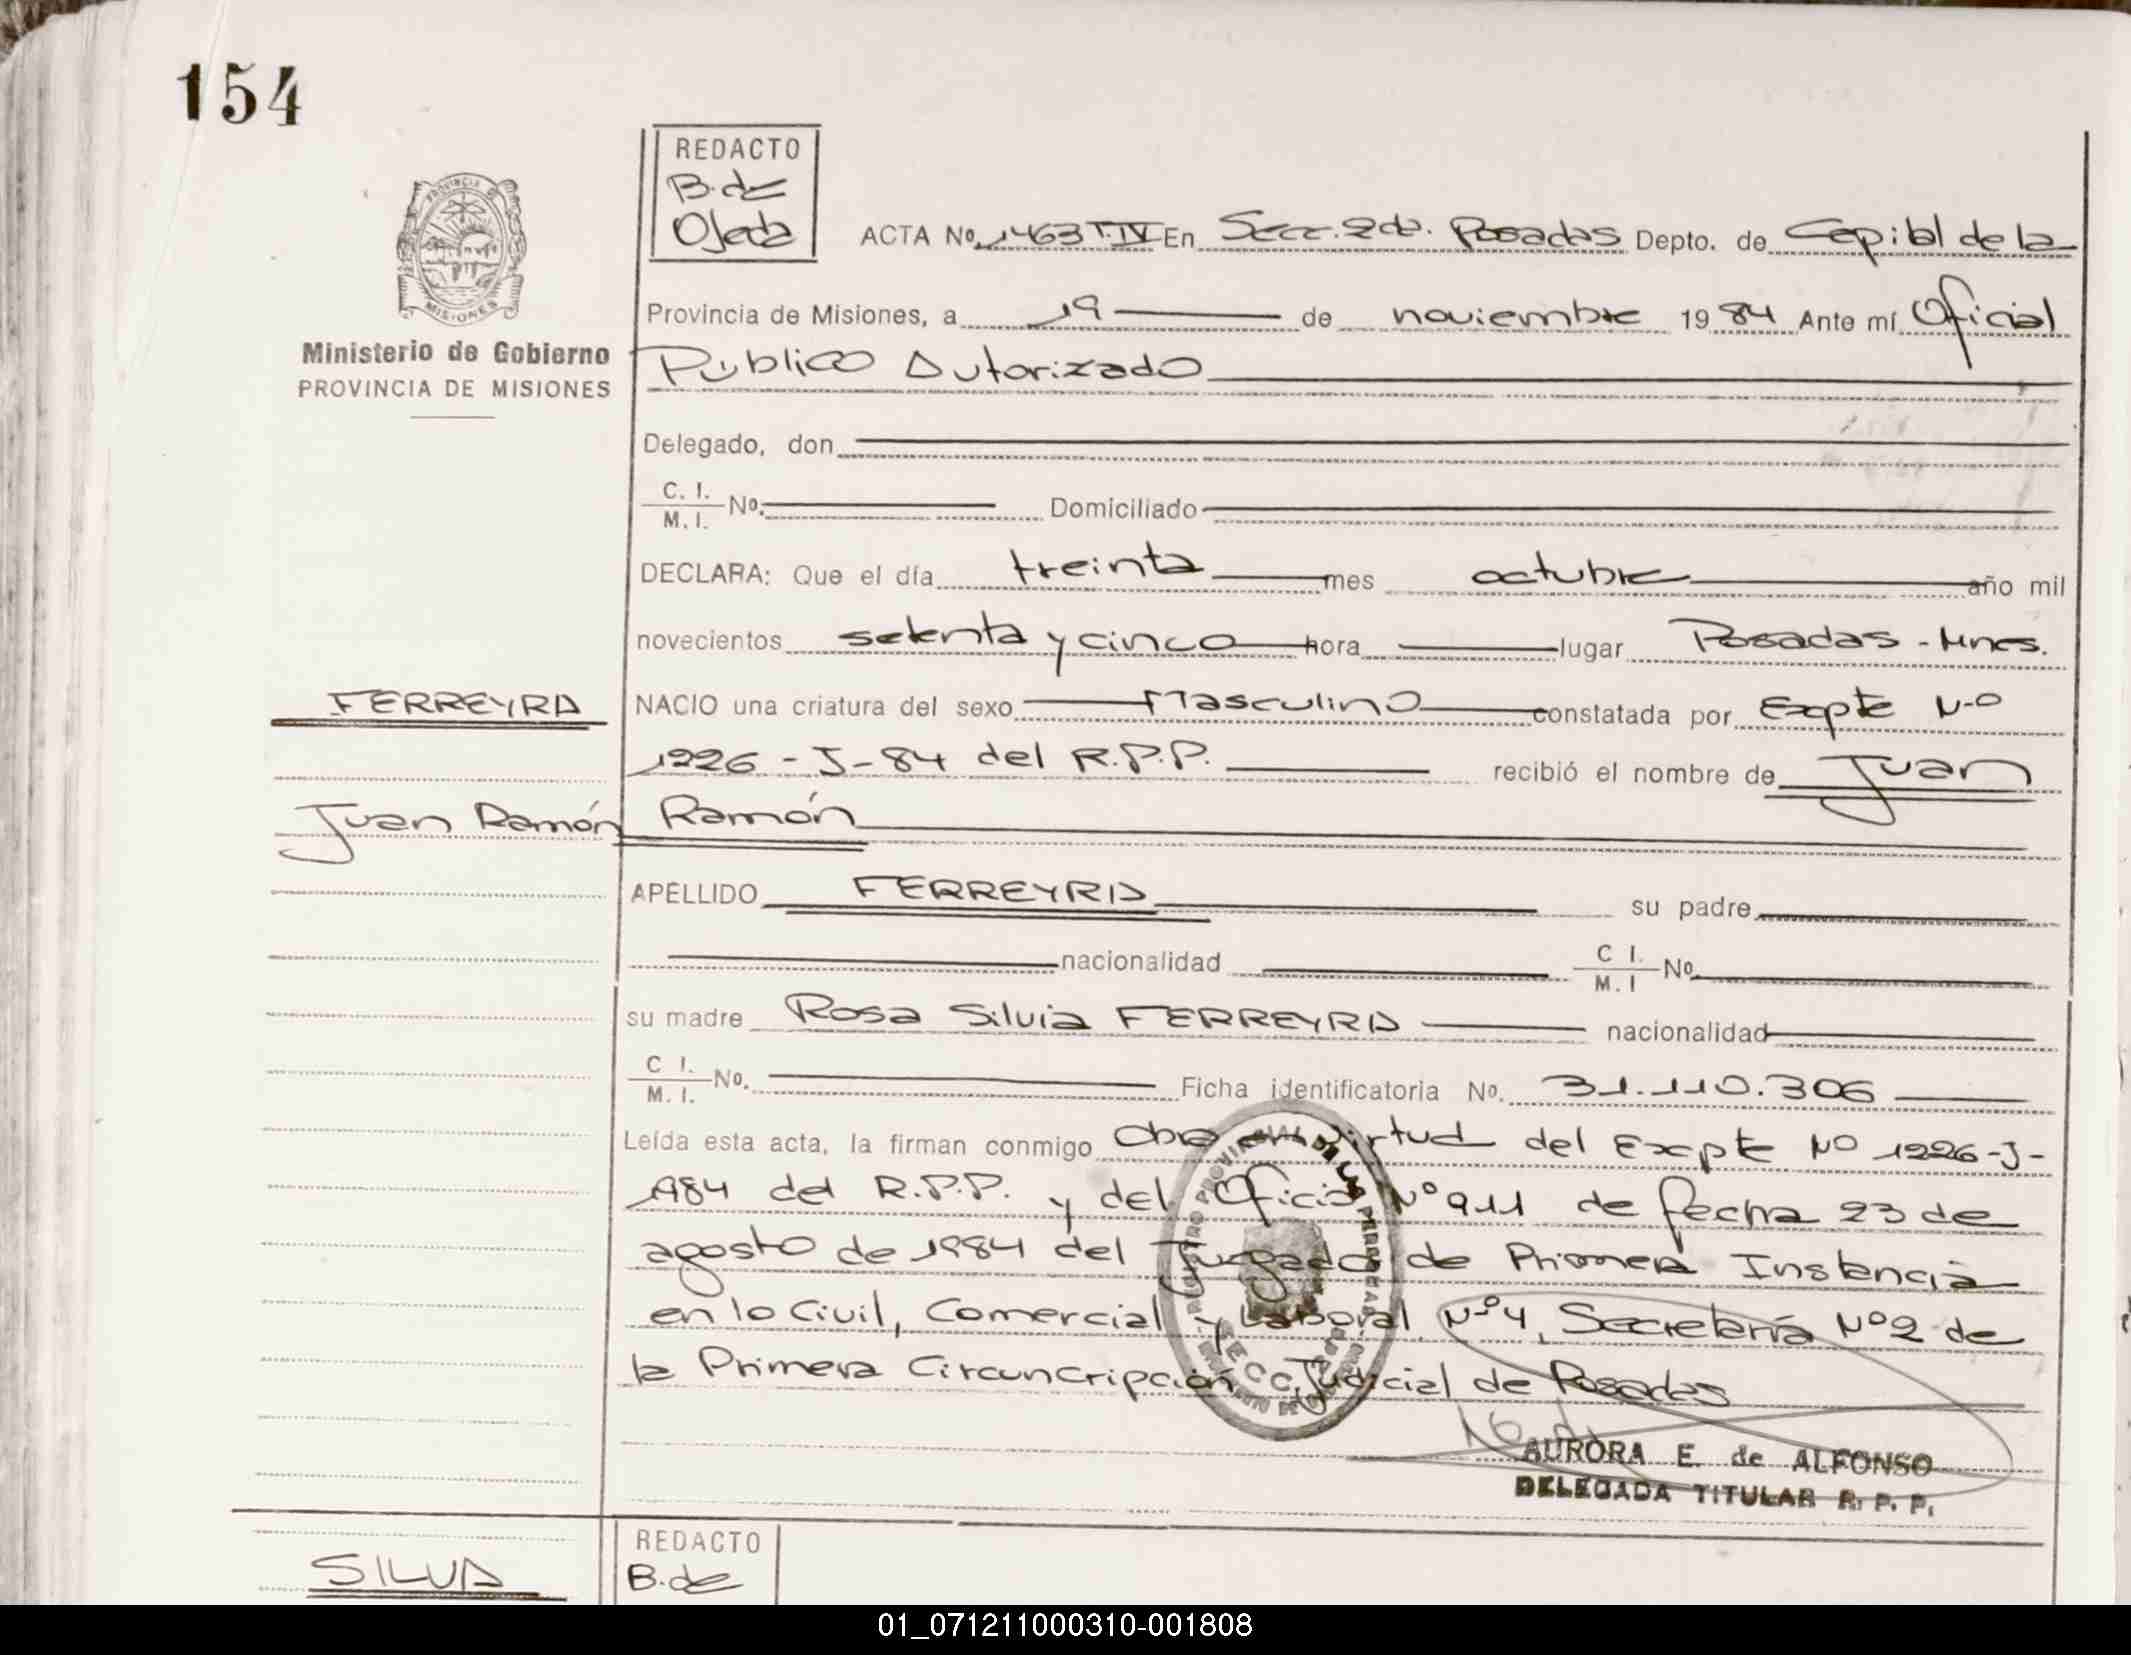 154
REDACTO
B. de
Ojeda
PROVINCIA DE
MISIONES
Ministerio de Gobierno
PROVINCIA DE MISIONES
ACTA Nº 1463 T.IV En Secc. 2da. Posadas Depto. de Capital de la
Provincia de Misiones, a 19 de noviembre 1984 Ante mí Oficial
Publico Autorizado
Delegado, don
C. I. M. I. Nº. Domiciliado
DECLARA: Que el día treinta mes octubre año mil
novecientos setenta y cinco hora lugar Posadas - Mnes.
FERREYRA
NACIO una criatura del sexo Masculino constatada por Expte Nº
1226 - J - 84 del R.P.P. recibió el nombre de Juan
Juan Ramón
Ramón
APELLIDO FERREYRA su padre
nacionalidad C I. M. I Nº
su madre Rosa Silvia FERREYRA nacionalidad
C I. M. I. Nº. Ficha identificatoria Nº. 31.110.306
Leída esta acta, la firman conmigo Obra en virtud del Expte Nº 1226-J-
1984 del R.P.P. y del Oficio Nº 911 de fecha 23 de
agosto de 1984 del Juzgado de Primera Instancia
en lo Civil, Comercial y Laboral Nº 4, Secretaría Nº 2 de
la Primera Circuncripción Judicial de Posadas
AURORA E. de ALFONSO
DELEGADA TITULAR R. P. P.
SILVA
REDACTO
B. de
01_071211000310-001808